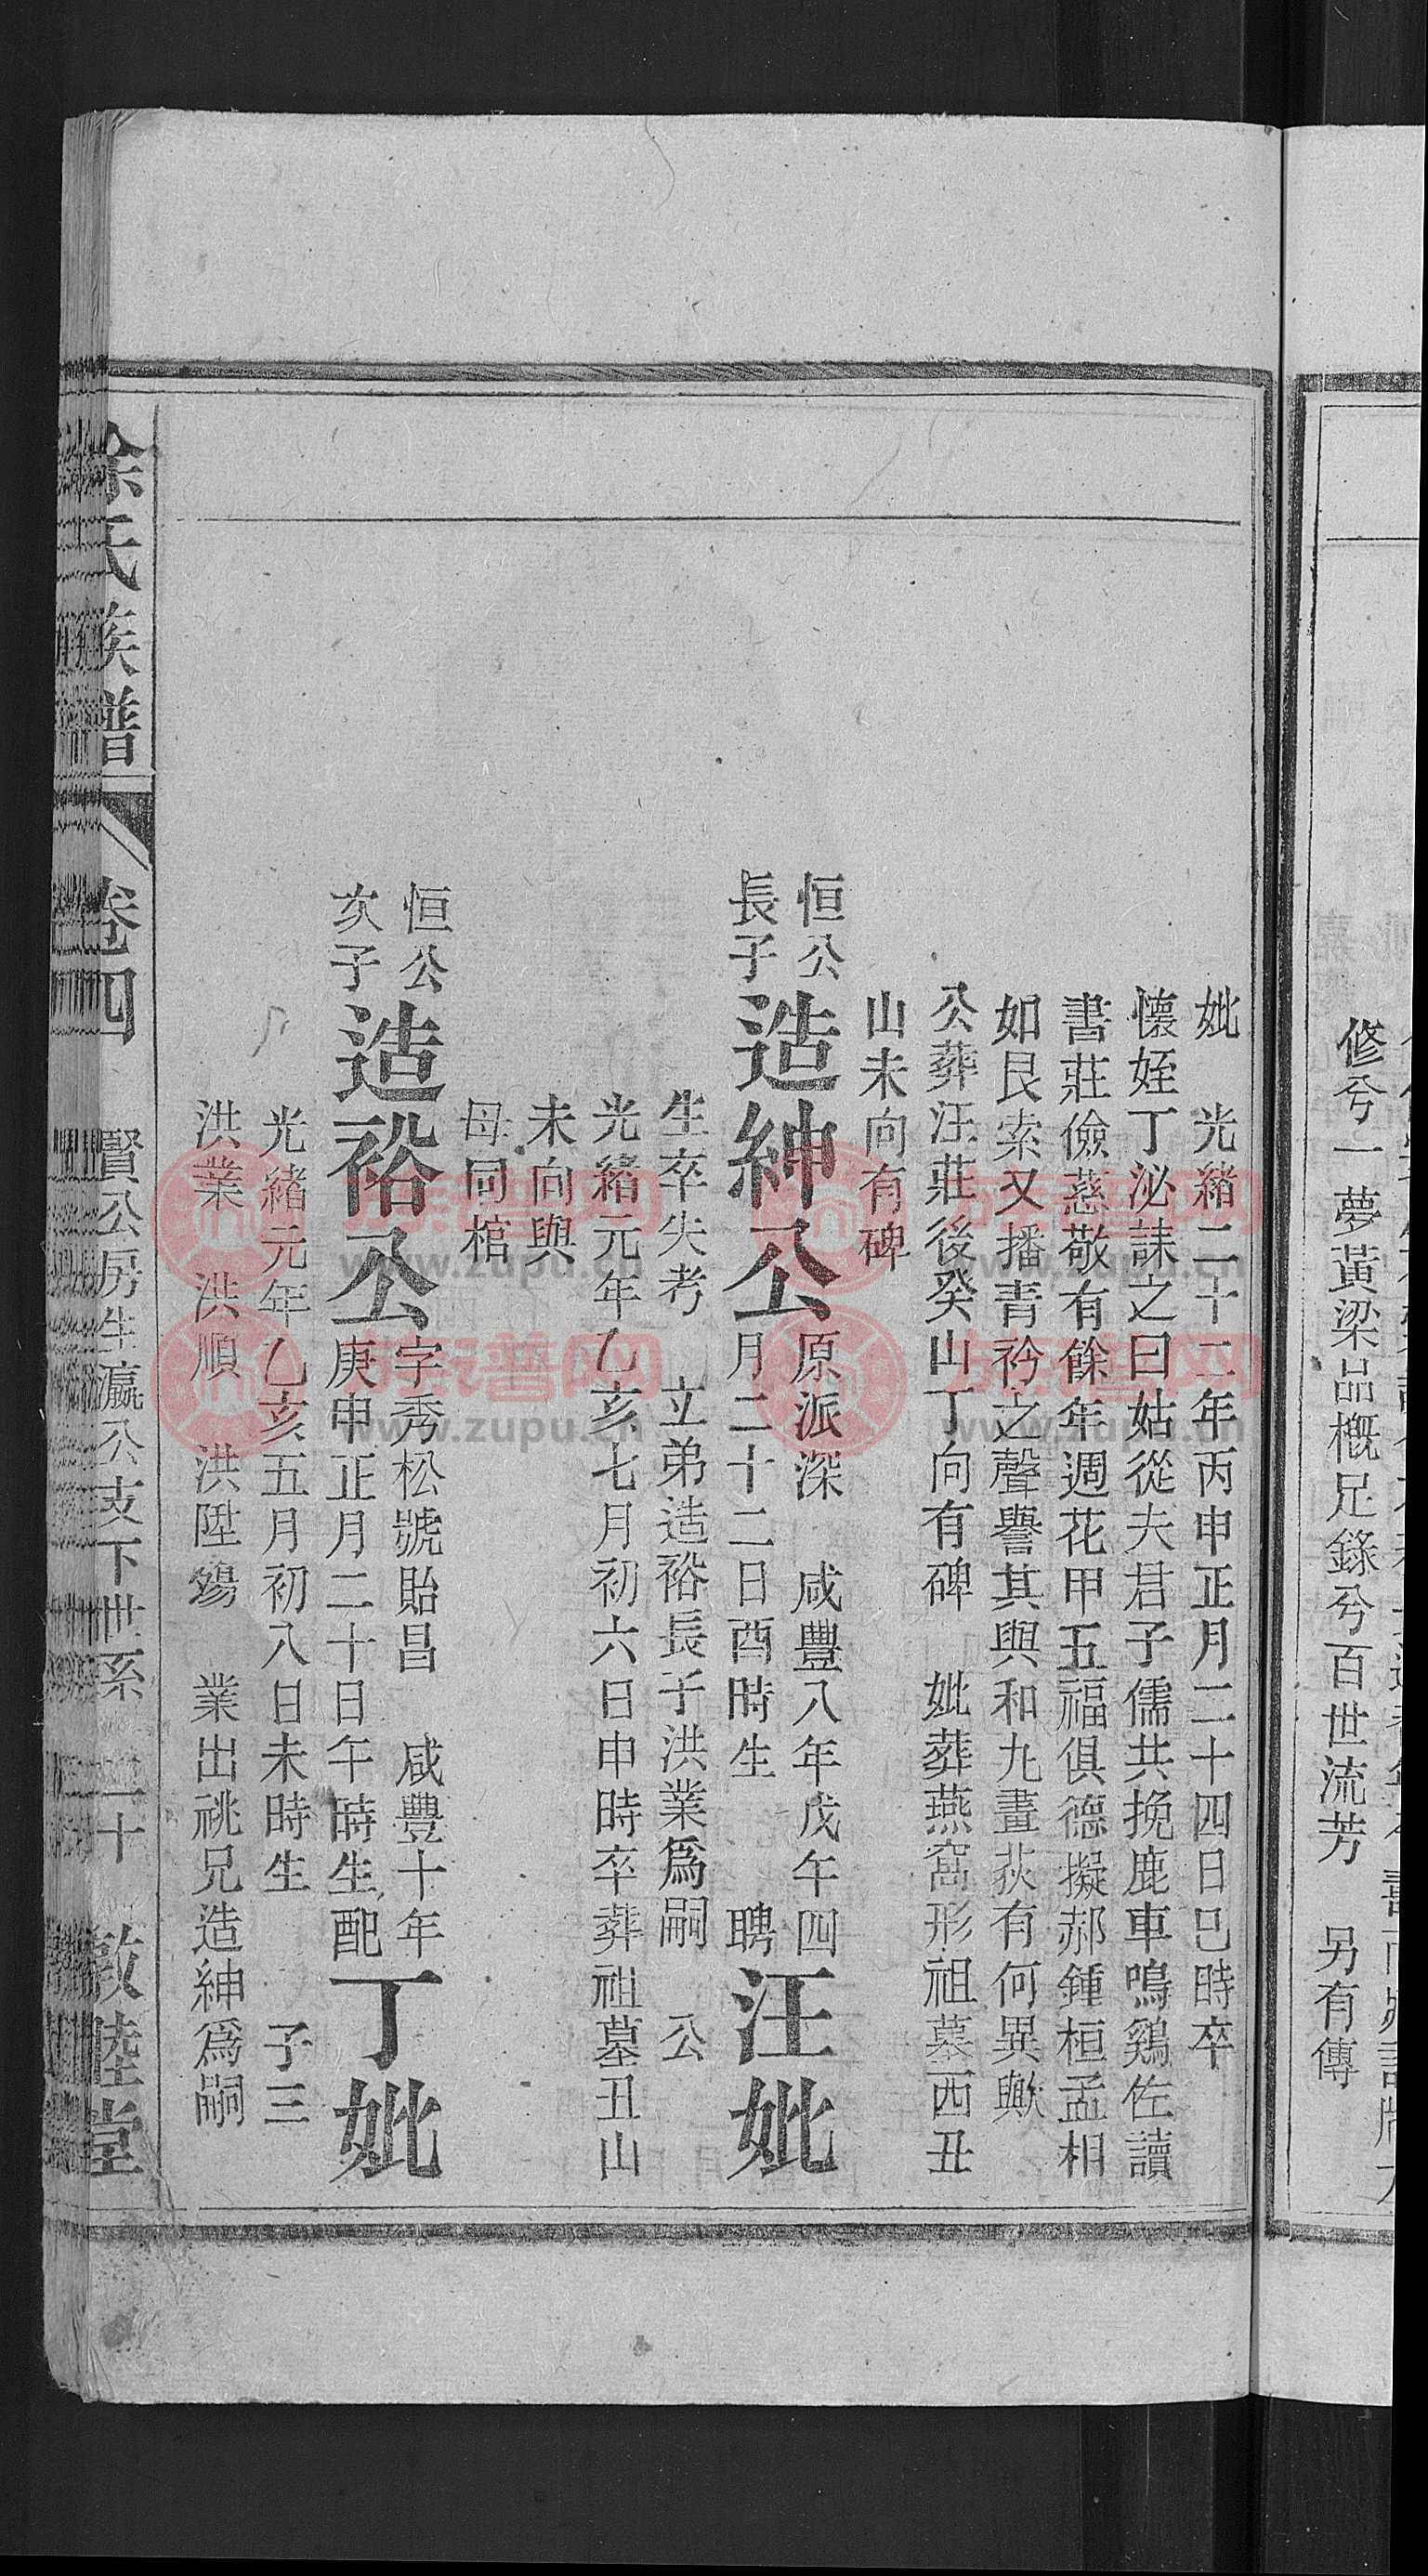 修兮一夢黃梁品槪足錄兮百世流芳　另有傳
妣　光緒二十二年丙申正月二十四日巳時卒
懷姪丁泌誄之曰姑從夫君子儒共挽鹿車鳴鷄佐讀
書莊儉慈敬有餘年週花甲五福俱德擬郝鍾桓孟相
如艮索又播青衿之聲譽其與和九畫荻有何異歟
公葬汪莊後癸山丁向有碑　妣葬燕窩形祖墓西丑
山未向有碑
恒公長子造紳公原派深　咸豐八年戊午四月二十二日酉時生　聘汪妣
生卒失考　立弟造裕長子洪業爲嗣　公
光緒元年乙亥七月初六日申時卒葬祖墓丑山
未向與
母同棺
恒公次子造裕公字秀松號貽昌　咸豐十年庚申正月二十日午時生配丁妣
光緒元年乙亥五月初八日未時生　子三
洪業　洪順　洪陞殤　業出祧兄造紳爲嗣
氏族譜　卷四　賢公房生瀛公支下世系　二十　敦睦堂
族譜网
www.zupu.cn